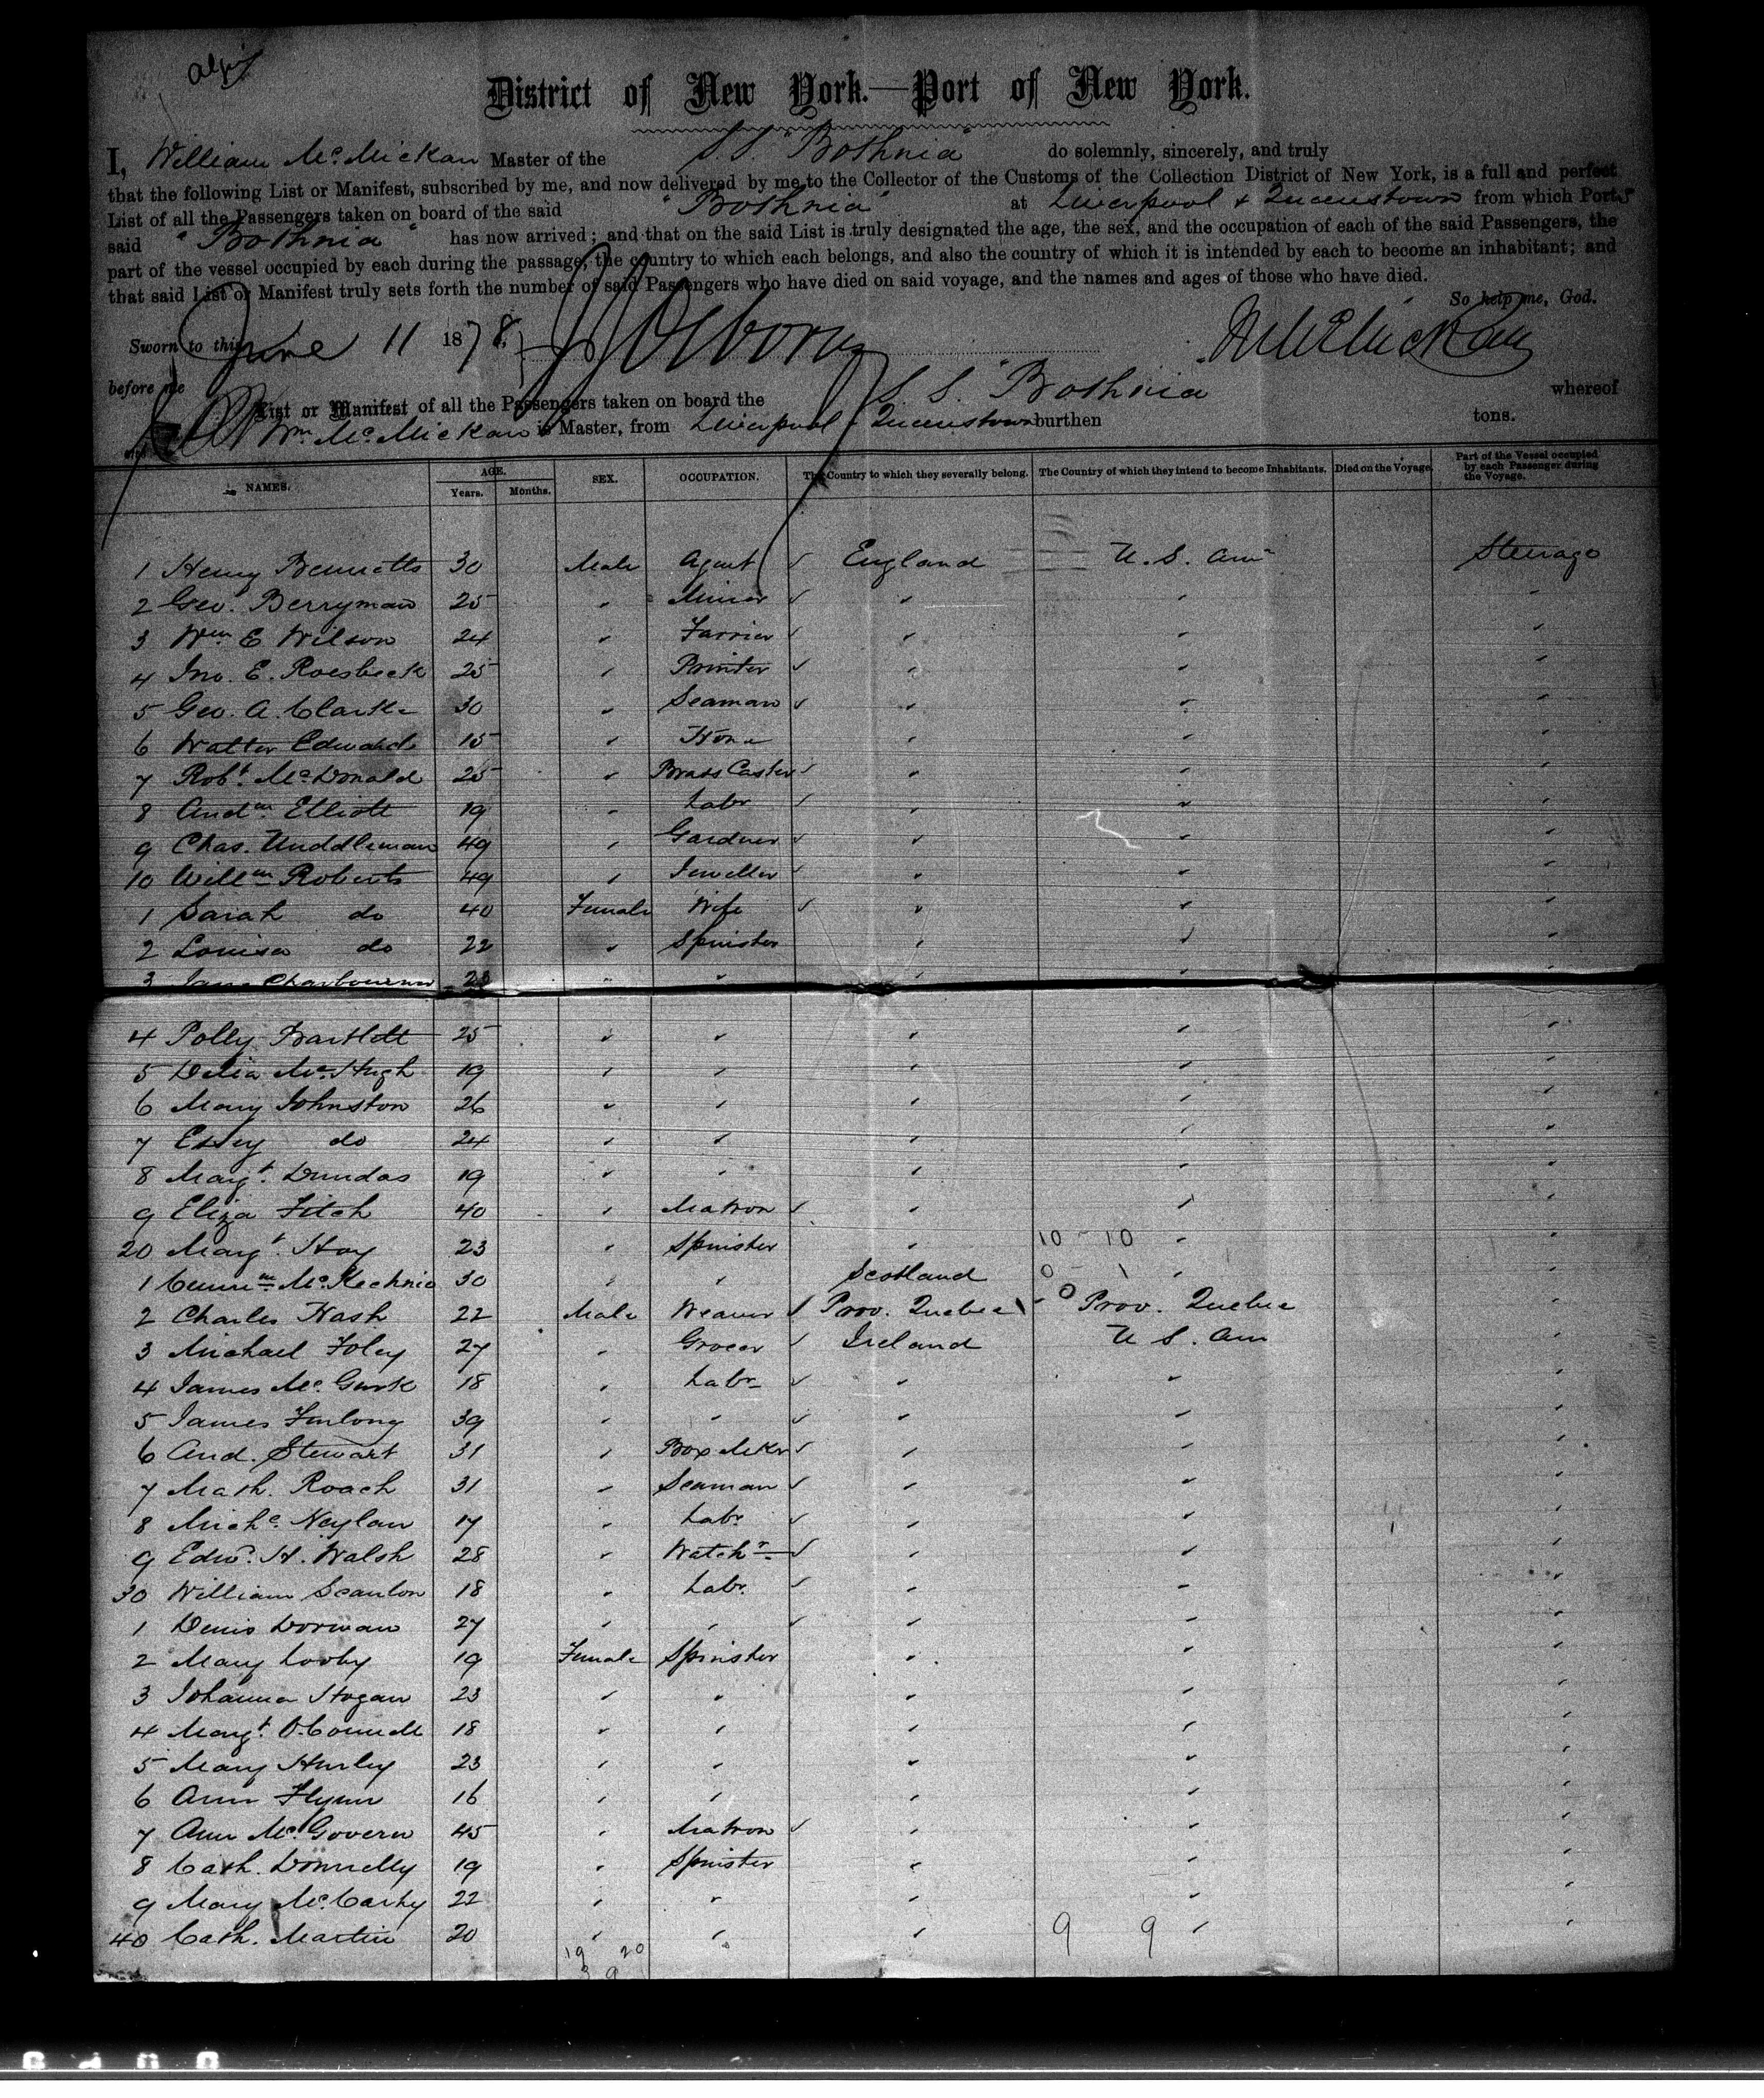 District of New York.—Port of New York.
I, William McMickan Master of the S.S. "Bothnia" do solemnly, sincerely, and truly
that the following List or Manifest, subscribed by me, and now delivered by me to the Collector of the Customs of the Collection District of New York, is a full and perfect
List of all the Passengers taken on board of the said "Bothnia" at Liverpool & Queenstown from which Ports
said "Bothnia" has now arrived; and that on the said List is truly designated the age, the sex, and the occupation of each of the said Passengers, the
part of the vessel occupied by each during the passage, the country to which each belongs, and also the country of which it is intended by each to become an inhabitant; and
that said List or Manifest truly sets forth the number of said Passengers who have died on said voyage, and the names and ages of those who have died.
So help me, God.
Sworn to this June 11 1878,
before me
List or Manifest of all the Passengers taken on board the S. S. "Bothnia" whereof
Wm. McMickan is Master, from Liverpool & Queenstown burthen tons.
NAMES. AGE. Years. Months. SEX. OCCUPATION. The Country to which they severally belong. The Country of which they intend to become Inhabitants. Died on the Voyage. Part of the Vessel occupied by each Passenger during the Voyage.
1 Henry Bennetts 30 Male Agent ✓ England U.S. Am Steerage
2 Geo. Berryman 25 " Miner ✓ " " "
3 Wm E Wilson 24 " Farrier ✓ " " "
4 Jno. E. Roesbeck 25 " Printer ✓ " " "
5 Geo. A. Clarke 30 " Seaman ✓ " " "
6 Walter Edwards 15 " None " " "
7 Robt. McDonald 25 " Brass Caster ✓ " " "
8 Andw. Elliott 19 " Labr ✓ " " "
9 Chas. Muddleman 49 " Gardner ✓ " " "
10 Willm Roberts 49 " Jeweller ✓ " " "
1 Sarah do 40 Female Wife ✓ " " "
2 Louisa do 22 " Spinster " " "
3 Jane Charbourne 23 " " " " "
4 Polly Bartlett 25 " " " " "
5 Delia McHugh 19 " " " " "
6 Mary Johnston 26 " " " " "
7 Essy do 24 " " " " "
8 Margt. Dundas 19 " " " " "
9 Eliza Fitch 40 " Matron ✓ " " "
20 Margt. Hay 23 " Spinster " 10 - 10 " "
1 McKechnie 30 " " Scotland 0 - 1 " "
2 Charles Nash 22 Male Weaver ✓ Prov. Quebec - 0 Prov. Quebec "
3 Michael Foley 27 " Grocer ✓ Ireland U S. Am "
4 James McGurk 18 " Labr ✓ " " "
5 James Furlong 39 " " ✓ " " "
6 And. Stewart 31 " Box Mkr ✓ " " "
7 Math. Roach 31 " Seaman ✓ " " "
8 Michl. Neylan 17 " Labr. ✓ " " "
9 Edwd. H. Walsh 28 " Watchr ✓ " " "
30 William Scanlon 18 " Labr. ✓ " " "
1 Denis Dorman 27 " " ✓ " " "
2 Mary Looby 19 Female Spinster " " "
3 Johanna Hogan 23 " " " " "
4 Margt. O'Connell 18 " " " " "
5 Mary Hurley 23 " " " " "
6 Ann Flynn 16 " " " " "
7 Ann McGovern 45 " Matron ✓ " " "
8 Cath. Donnelly 19 " Spinster " " "
9 Mary McCarthy 22 " " " " "
40 Cath. Martin 20 " " " 9 9 " "
19 20
3 9